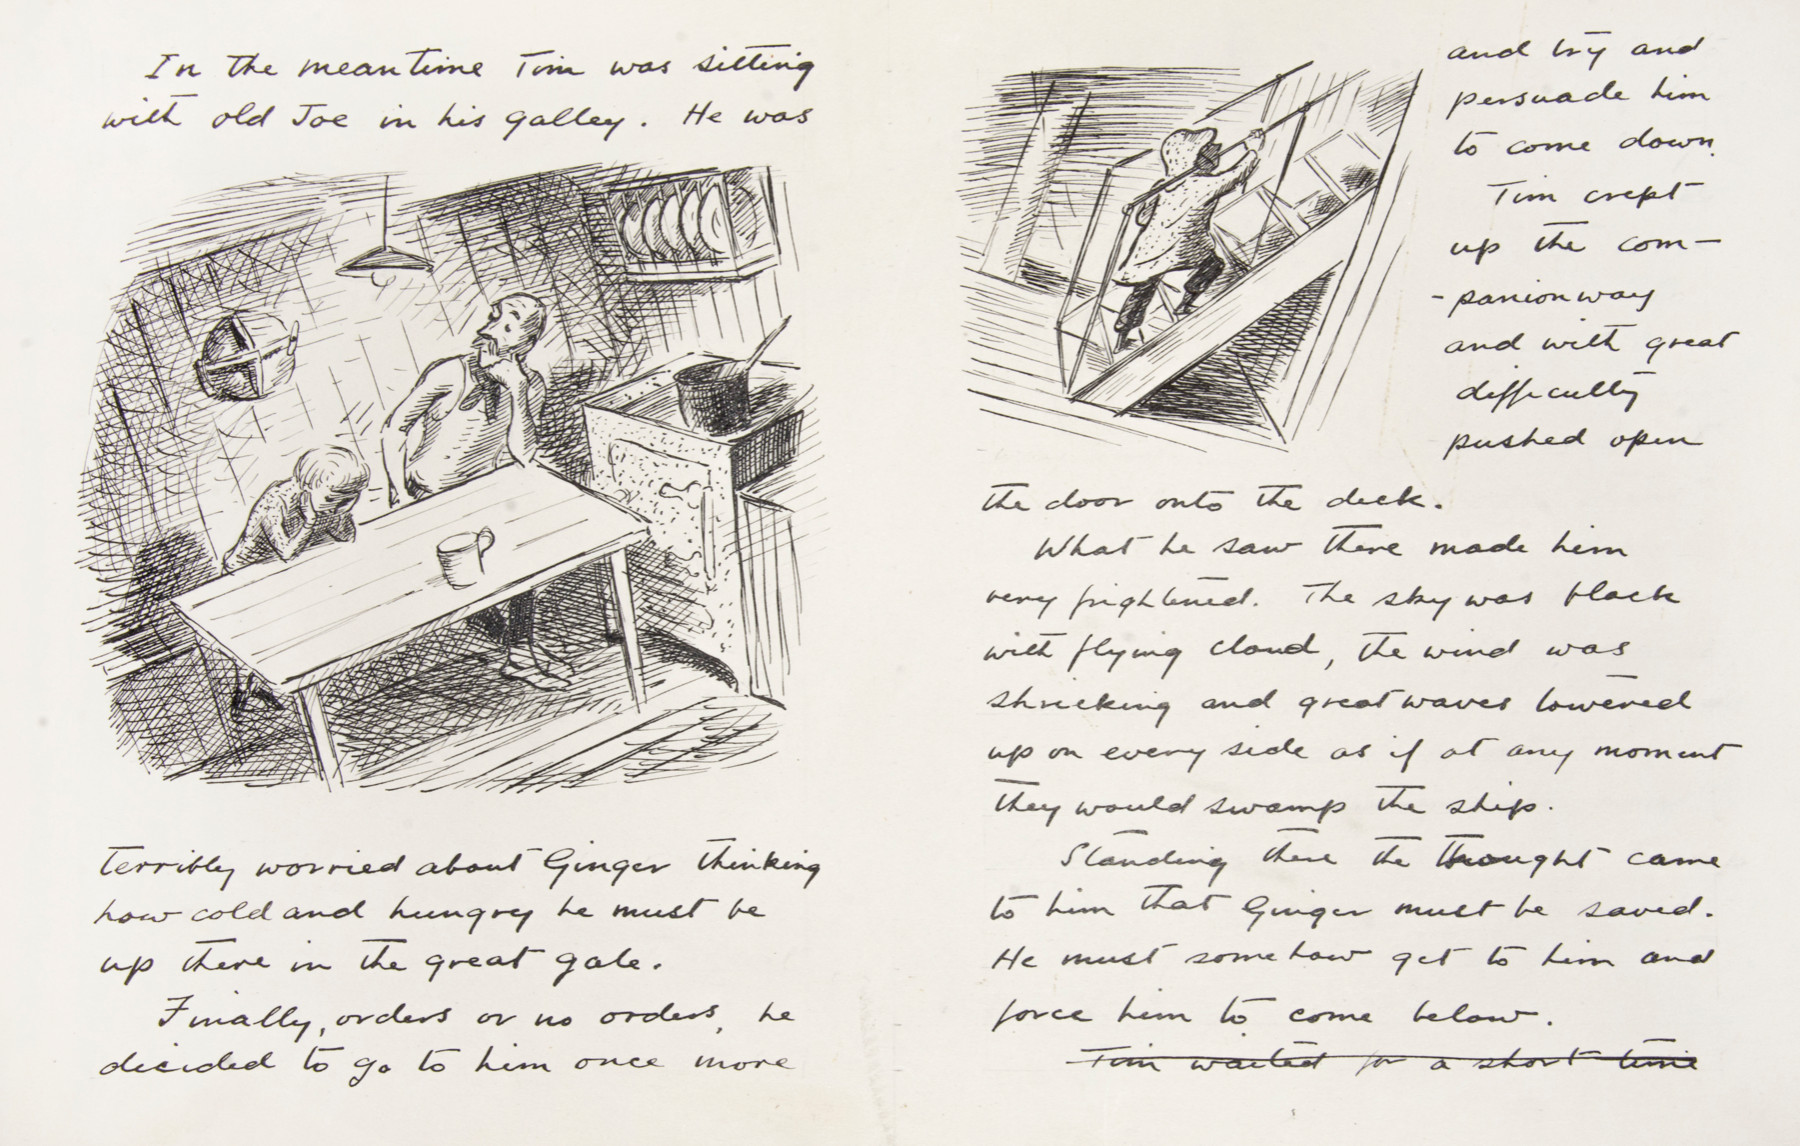 In the meantime Tim was sitting
with old Joe in his galley. He was
terribly worried about Ginger thinking
how cold and hungry he must be
up there in the great gale.
Finally, orders or no orders, he
decided to go to him once more
and try and
persuade him
to come down.
Tim crept
up the com-
-panionway
and with great
difficulty
pushed open
the door onto the deck.
What he saw there made him
very frightened. The sky was black
with flying cloud, the wind was
shrieking and great waves towered
up on every side as if at any moment
they would swamp the ship.
Standing there the thought came
to him that Ginger must be saved.
He must somehow get to him and
force him to come below.
Tim waited for a short time